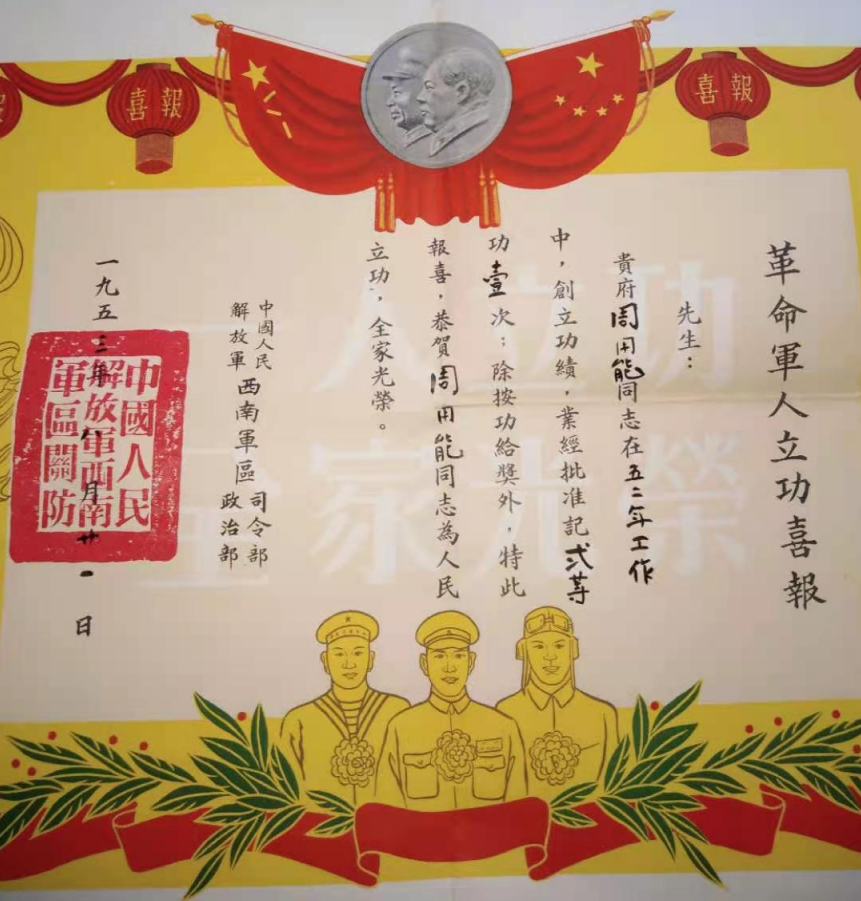 喜報
喜報
報
革命軍人立功喜報
先生：
貴府周用能同志在五二年工作
中，創立功績，業經批准記弍等
功壹次；除按功給獎外，特此
報喜，恭賀周用能同志為人民
立功，全家光榮。
中國人民
解放軍
西南軍區
司令部
政治部
一九五三年 月廿一日
中國人民
解放軍西南
軍區關防
一人立功
全家光榮